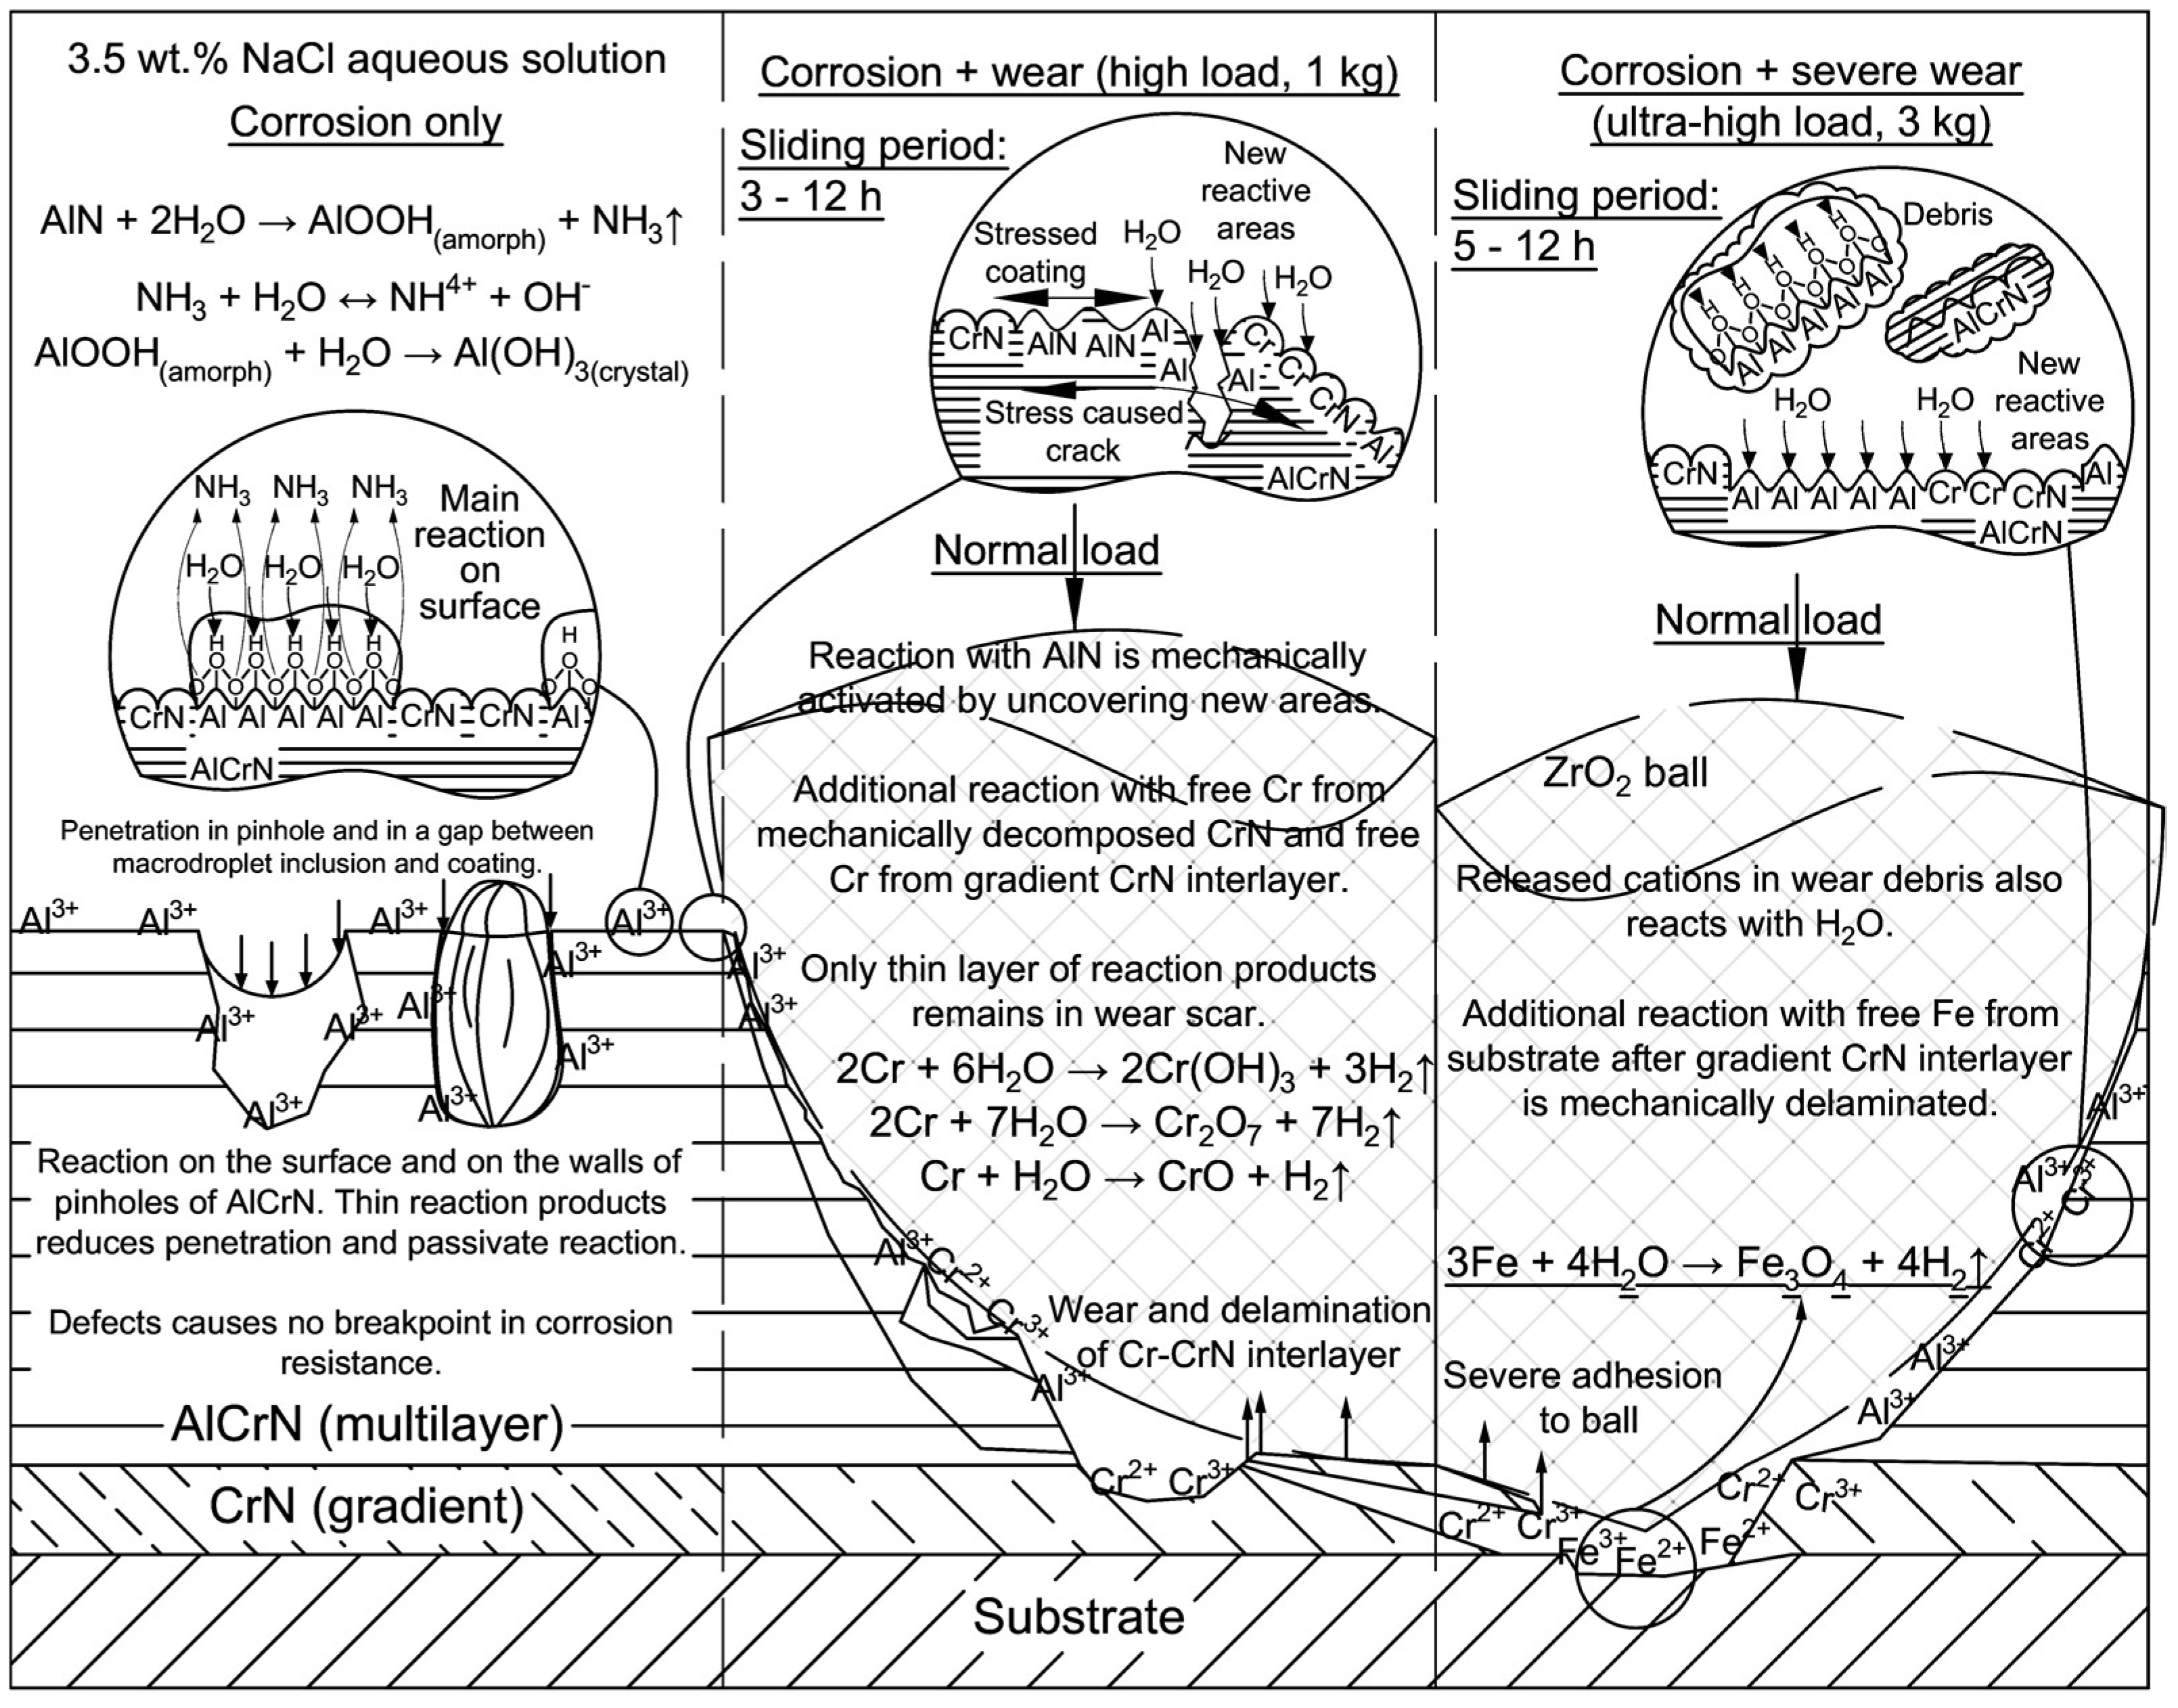 3.5 wt.% NaCl aqueous solution
Corrosion only
AlN + 2H₂O → AlOOH(amorph) + NH₃↑
NH₃ + H₂O ↔ NH⁴⁺ + OH⁻
AlOOH(amorph) + H₂O → Al(OH)₃(crystal)
NH₃ NH₃ NH₃
Main
reaction
on
surface
H₂O H₂O H₂O
H H H H H H
O O O O O O
O O O O O O O O
CrN Al Al Al Al Al CrN CrN Al
AlCrN
Penetration in pinhole and in a gap between
macrodroplet inclusion and coating.
Al³⁺ Al³⁺ Al³⁺ Al³⁺
Al³⁺
Al³⁺ Al³⁺ Al³⁺
Al³⁺
Al³⁺ Al³⁺
Reaction on the surface and on the walls of
pinholes of AlCrN. Thin reaction products
reduces penetration and passivate reaction.
Defects causes no breakpoint in corrosion
resistance.
AlCrN (multilayer)
CrN (gradient)
Substrate
Corrosion + wear (high load, 1 kg)
Sliding period:
3 - 12 h
New
reactive
areas
Stressed
coating
H₂O
H₂O H₂O
CrN AlN AlN Al
Al Al
Cr
Cr
CrN
Al
Stress caused
crack
AlCrN
Normal load
Reaction with AlN is mechanically
activated by uncovering new areas.
Additional reaction with free Cr from
mechanically decomposed CrN and free
Cr from gradient CrN interlayer.
Al³⁺
Al³⁺
Only thin layer of reaction products
remains in wear scar.
2Cr + 6H₂O → 2Cr(OH)₃ + 3H₂↑
2Cr + 7H₂O → Cr₂O₇ + 7H₂↑
Cr + H₂O → CrO + H₂↑
Al³⁺ Cr²⁺
Cr³⁺
Al³⁺
Wear and delamination
of Cr-CrN interlayer
Cr²⁺ Cr³⁺
Corrosion + severe wear
(ultra-high load, 3 kg)
Sliding period:
5 - 12 h
Debris
H H H H
O O O O
O O O O O
Al Al Al Al Al
AlCrN
New
reactive
areas
H₂O H₂O
CrN Al Al Al Al Al Cr Cr CrN Al
AlCrN
Normal load
ZrO₂ ball
Released cations in wear debris also
reacts with H₂O.
Additional reaction with free Fe from
substrate after gradient CrN interlayer
is mechanically delaminated.
Al³⁺
Al³⁺ Cr³⁺
Cr²⁺
3Fe + 4H₂O → Fe₃O₄ + 4H₂↑
Al³⁺
Al³⁺
Severe adhesion
to ball
Cr²⁺ Cr³⁺
Cr²⁺ Cr³⁺
Fe³⁺ Fe²⁺ Fe²⁺